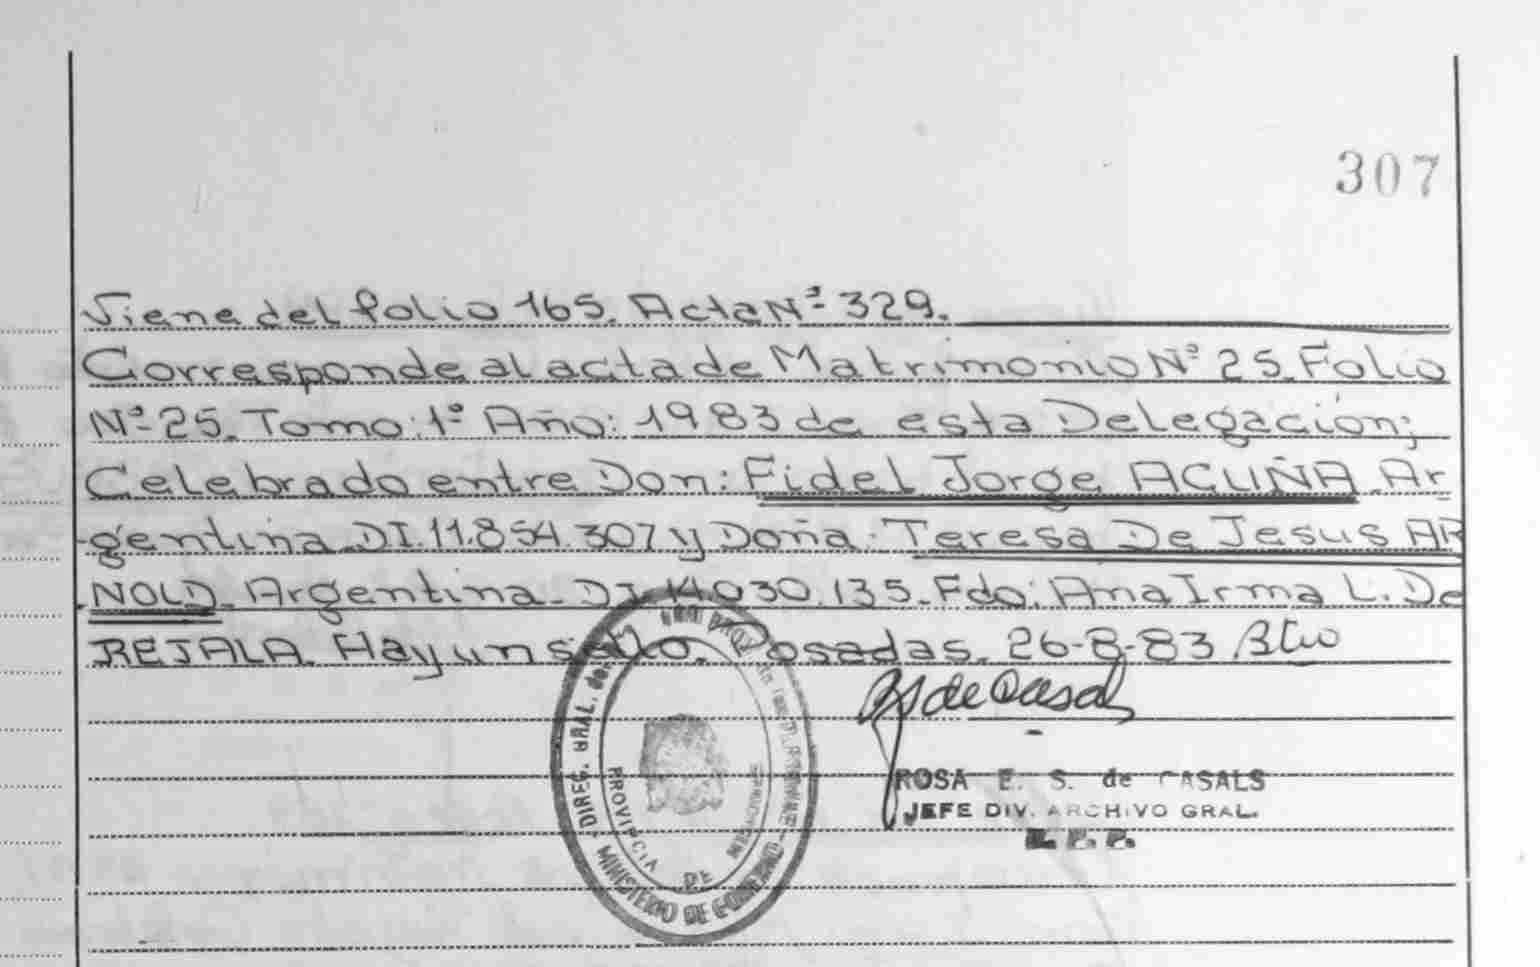 307
Viene del folio 165. Acta Nº 329.
Corresponde al acta de Matrimonio Nº 25. Folio
Nº 25. Tomo: 1º Año: 1983 de esta Delegación;
Celebrado entre Don: Fidel Jorge ACUÑA. Ar
gentina. DI. 11.854.307 y Doña: Teresa De Jesus AR
NOLD. Argentina. DI. 14.030.135. Fdo: Ana Irma L. De
REJALA. Hay un sello. Posadas. 26-8-83
de Casals
ROSA E. S. de CASALS
JEFE DIV. ARCHIVO GRAL.
DIREC. GRAL. del
MINISTERIO DE GOBIERNO
PROVINCIA DE